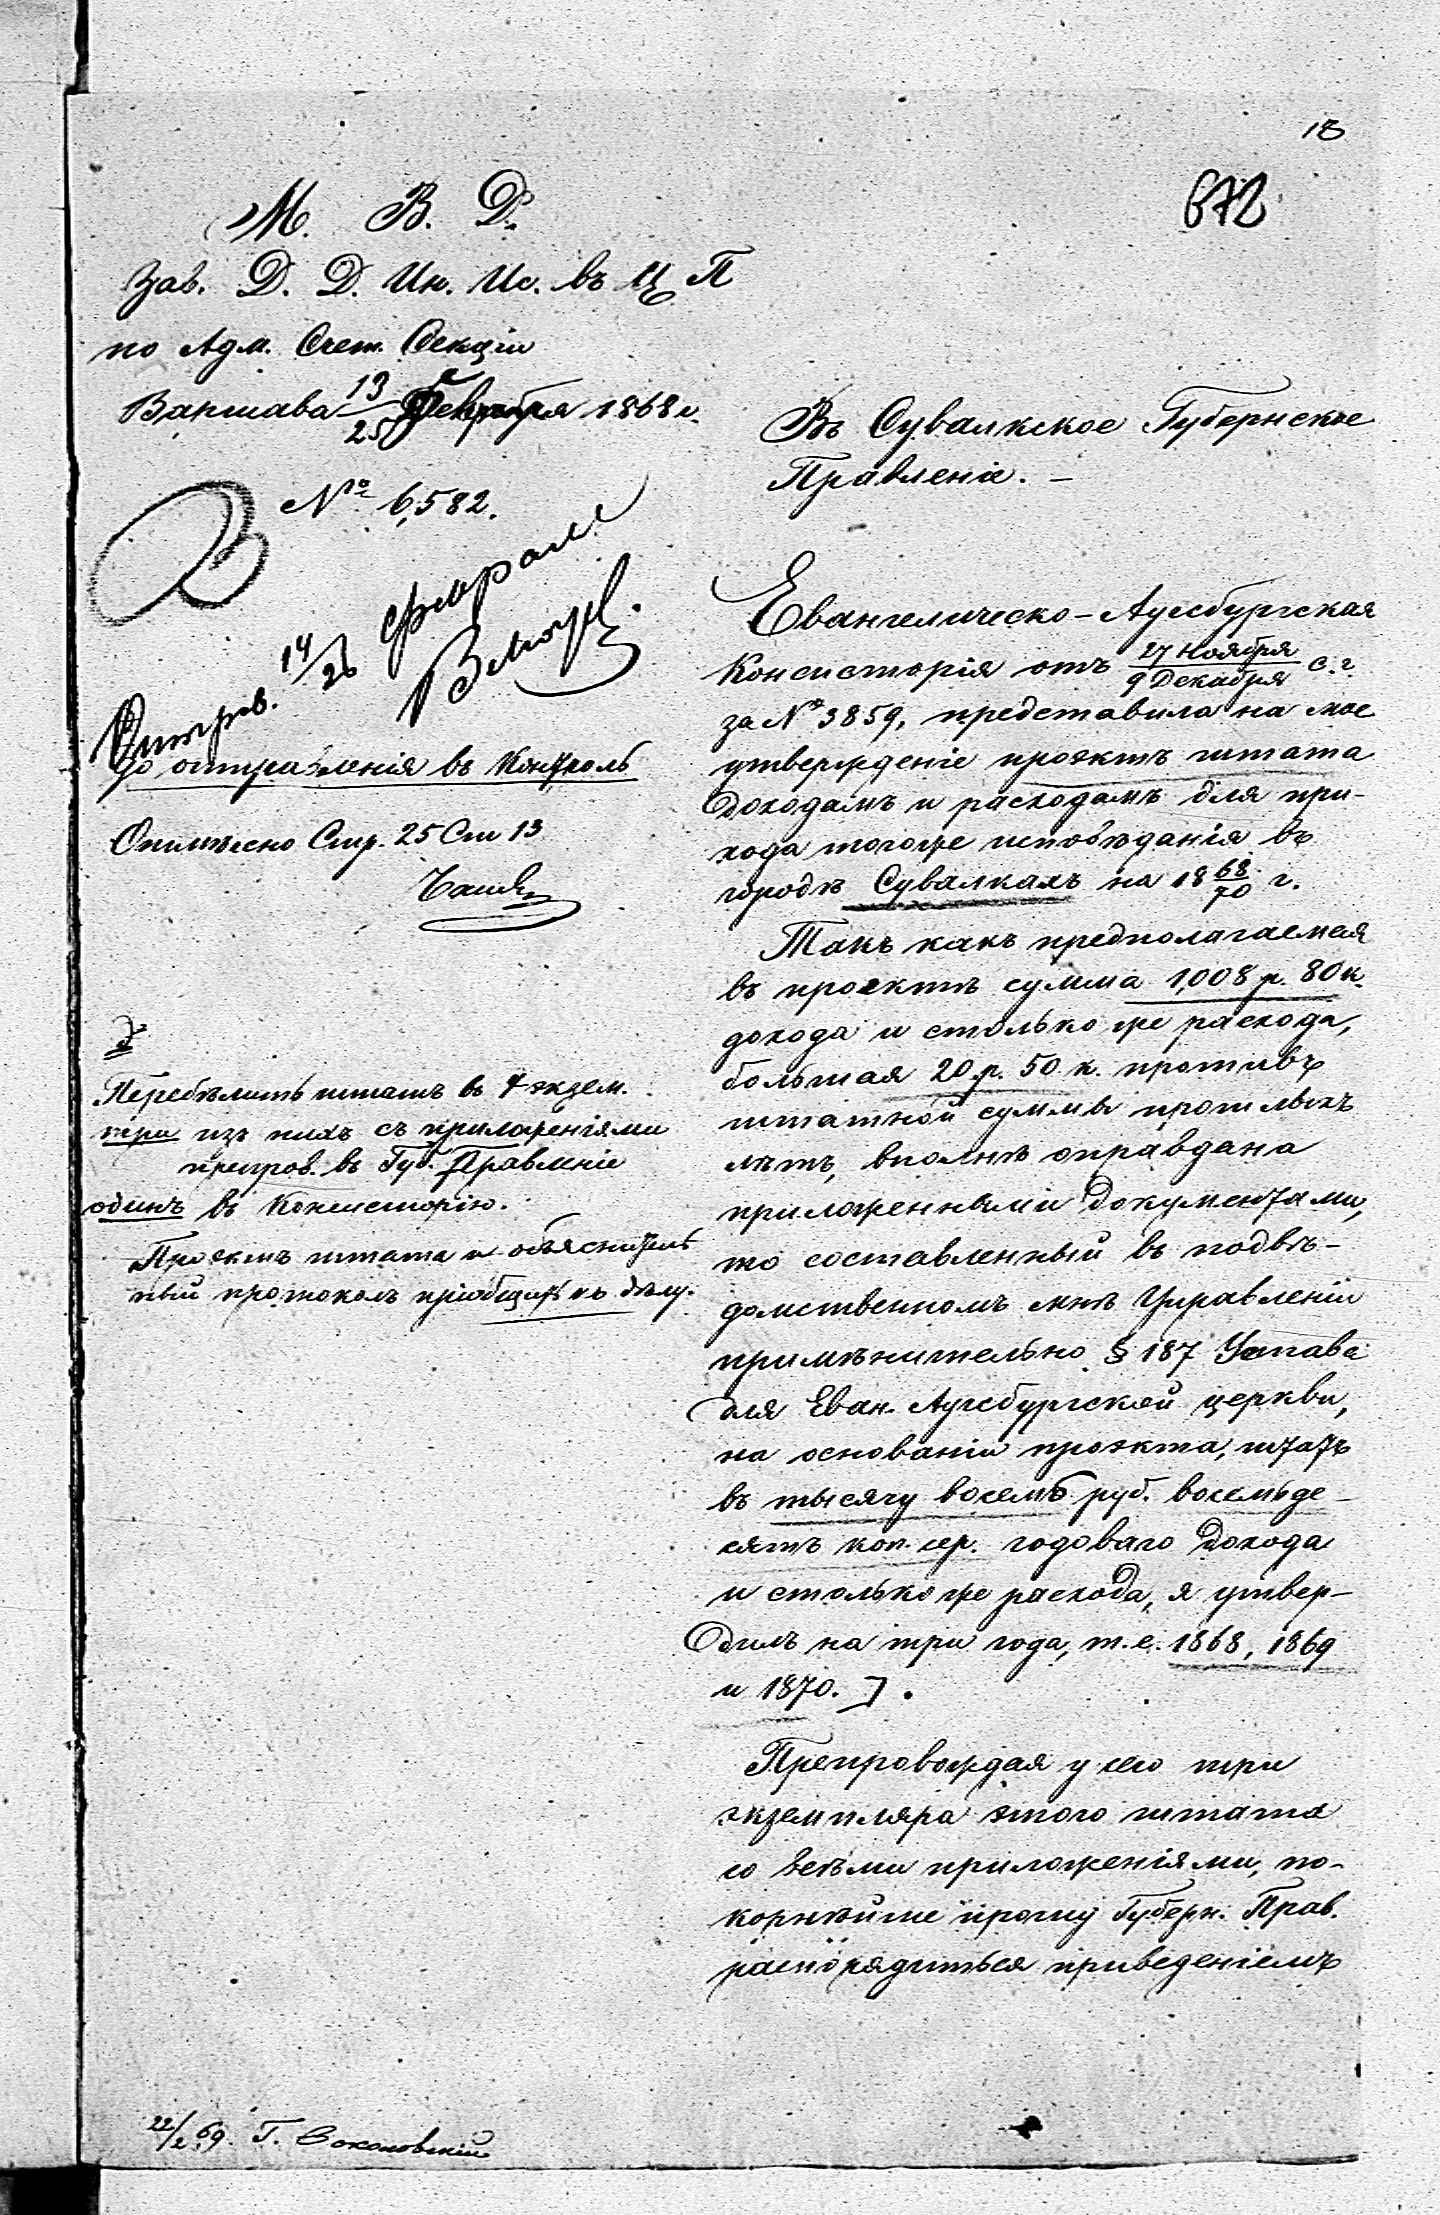 18
672
М. В. Д.
Зав. Д. Д. Ин. Ис. въ Ц П
по Адм. Счет. Секціи
Варшава 13/25 Февраля 1868 г.
№ 6,582.
Отправ. 14/26 февраля
до отправленія въ Контроль
Отмѣчено Стр. 25 Ст 13
Перебѣлить штатъ въ 4 экзем.
три изъ нихъ съ приложеніями
препров. въ Губ. Правленіе
одинъ въ Консисторію.
Проэктъ штата и объяснитель
ный протоколъ пріобщить къ дѣлу.
22/2 69. Г. Соколовскій
Въ Сувалкское Губернское
Правленіе. –
Евангелическо-Аугсбургская
Консисторія отъ 27 Ноября/9 Декабря с. г.
за № 3859, представила на мое
утвержденіе проэктъ штата
доходамъ и расходамъ для при-
хода тогоже исповѣданія въ
городѣ Сувалкахъ на 18 68/70 г.
Такъ какъ предполагаемая
въ проектѣ сумма 1,008 р. 80 к.
дохода и столько же расхода,
большая 20 р. 50 к. противъ
штатной суммы прошлыхъ
лѣтъ, вполнѣ оправдана
приложенными документами,
то составленный въ подвѣ-
домственномъ мнѣ Управленіи
примѣнительно § 187 Устава
для Еван. Аугсбургской церкви,
на основаніи проэкта, штатъ
въ тысячу восемь руб. восемьде-
сятъ коп. сер. годоваго дохода
и столько же расхода, я утвер-
дилъ на три года, т. е. 1868, 1869
и 1870. ].
Препровождая у сего три
экземпляра этого штата
со всѣми приложеніями, по-
корнѣйше прошу Губерн. Прав.
распорядиться приведеніемъ